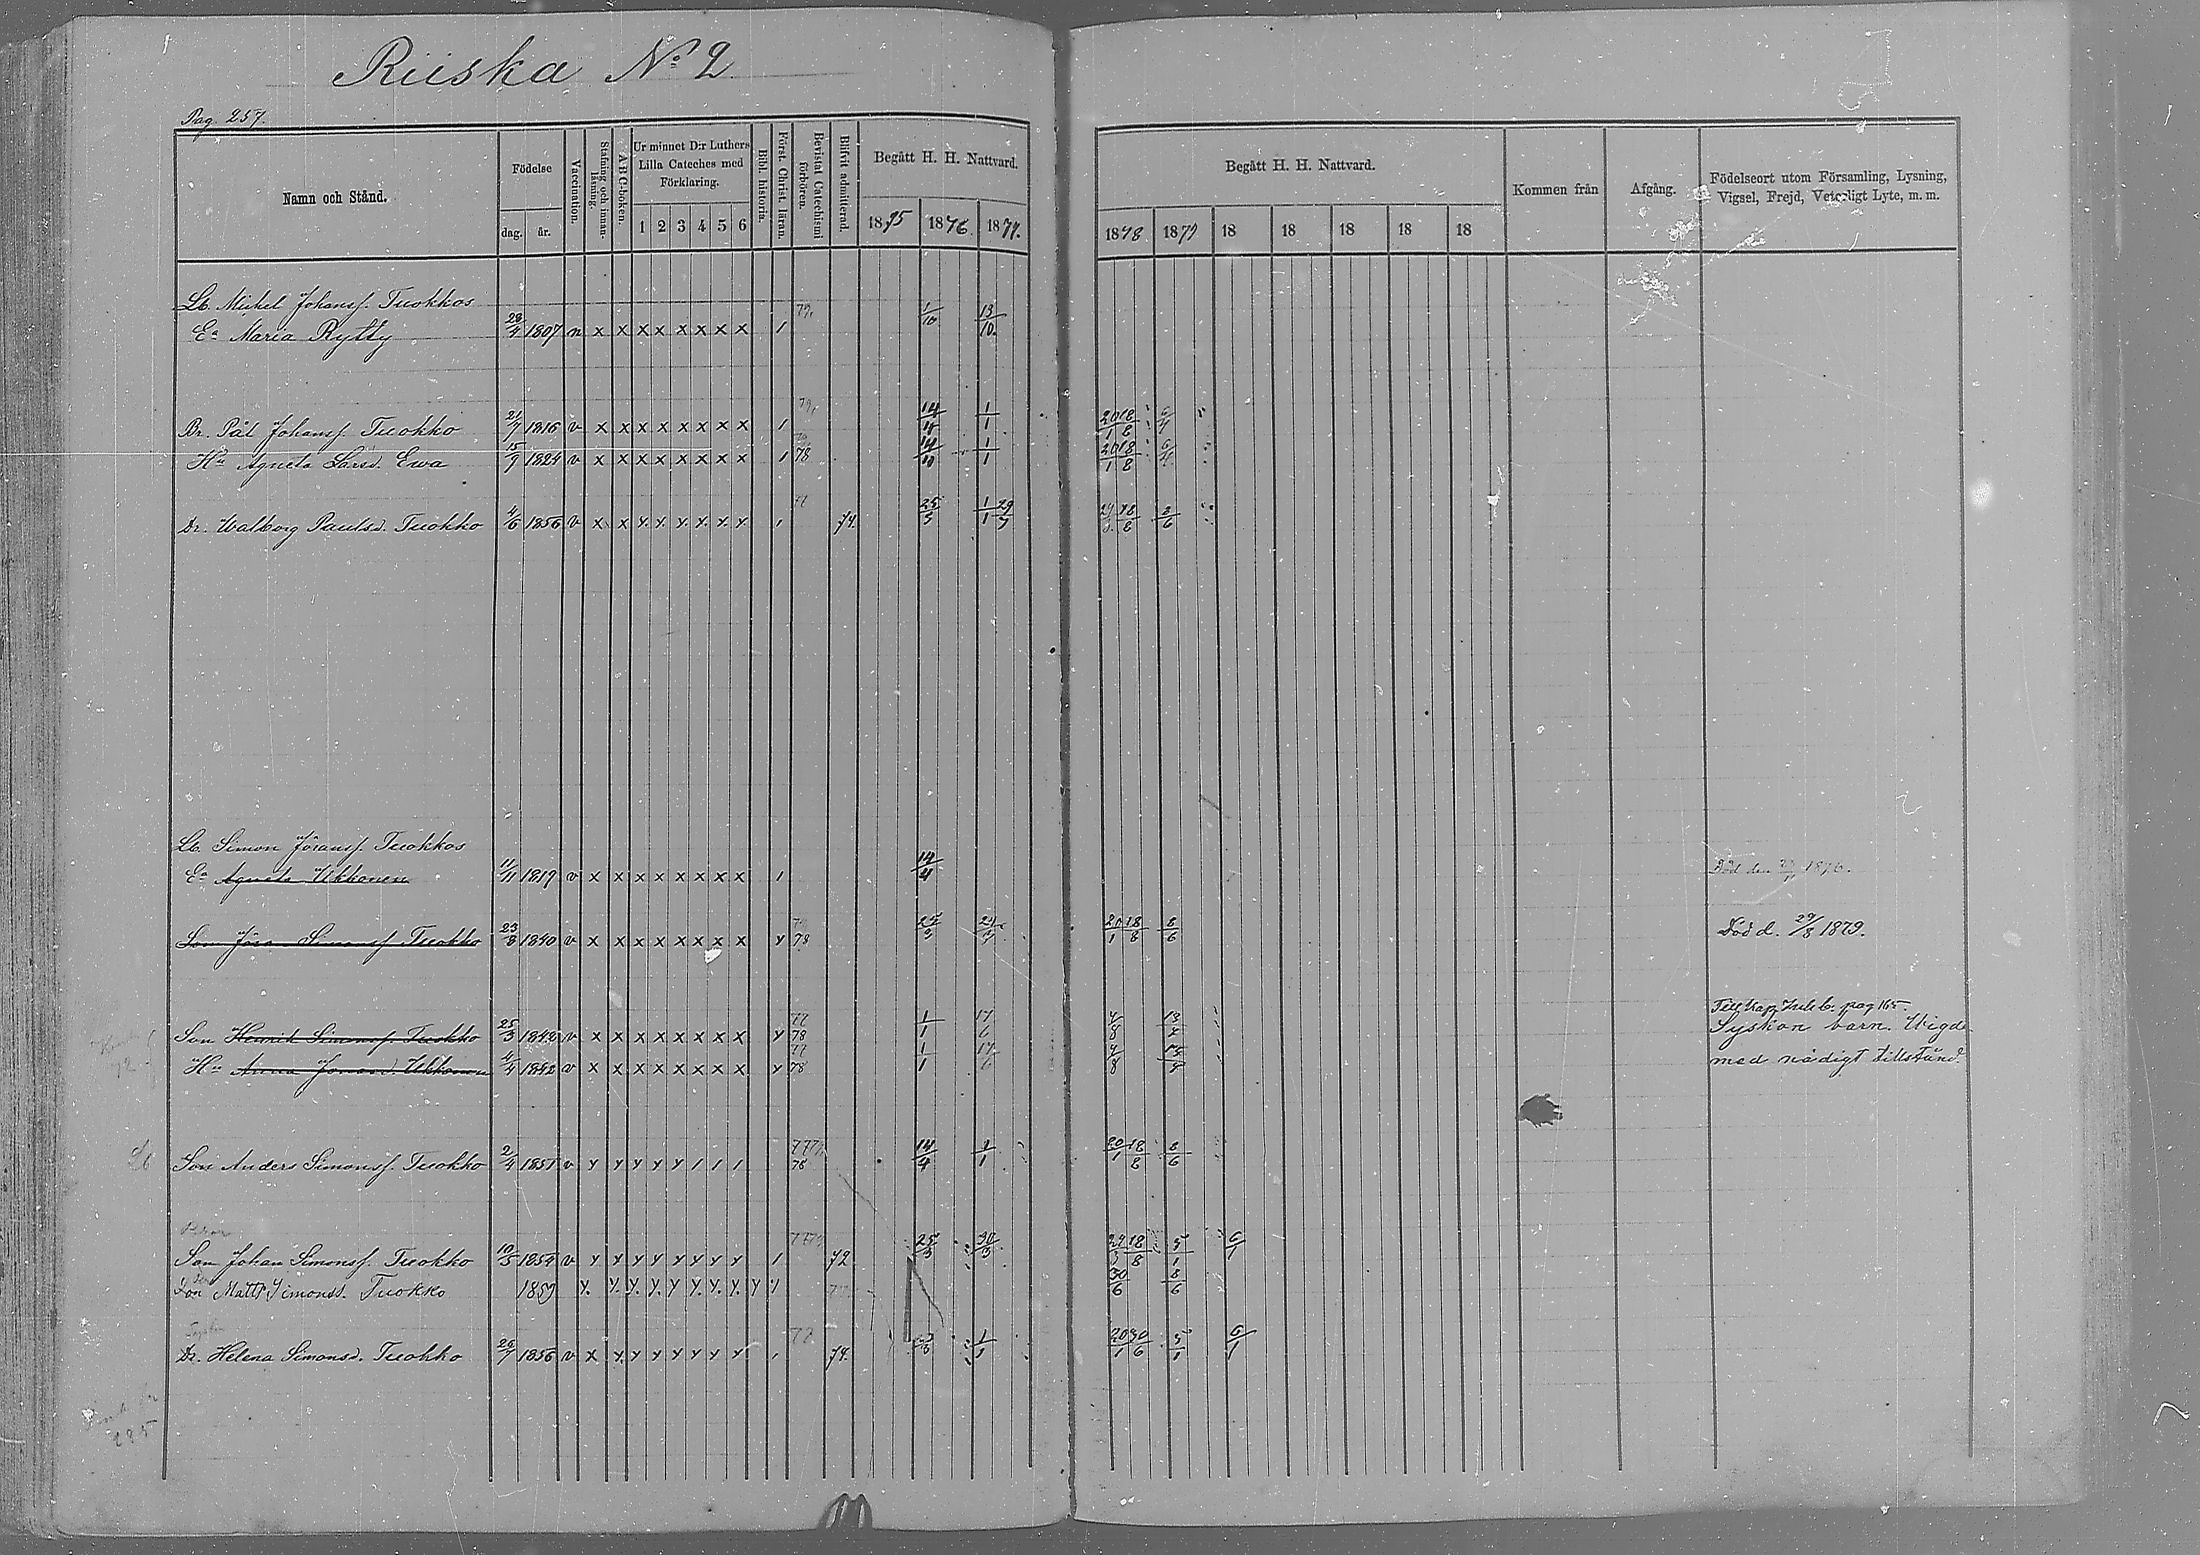 Riiska No 2
Pag. 257.
Namn och Stånd.
Födelse
dag. år.
Vaccination.
Stafning och innanläsning.
A B C-boken.
Ur minnet D:r Luthers Lilla Cateches med Förklaring.
1 2 3 4 5 6
Bibl. historia.
Först. Christ. läran.
Bevistat Catechismi förhören.
Blifvit admitterad.
Begått H. H. Nattvard.
1875 1876. 1877.
Begått H. H. Nattvard.
1878 1879 18 18 18 18 18
Kommen från
Afgång.
Födelseort utom Församling, Lysning, Vigsel, Frejd, Veterligt Lyte, m. m.
Lb. Mickel Johansf. Tuokkos
Ea Maria Rytty 23/4 1807 n x x x x x x x x 1 1/10 13/10.
Br. Pål Johansf. Tuokko 21/7 1816 v x x x x x x x x 1 1/1 20/1 18/8 6/4
Hu Agneta Larsd. Ewa 15/9 1824 v x x x x x x x x 1 78 1/1 20/1 18/8 6/4
Dr. Walborg Paulsd. Tuokko 4/6 1856 v x x y. y y y. y y 1 74. 25/3 1/1 18/8 8/6
Lb. Simon Jöransf. Tuokkos
Ea Agneta Ukkonen 11/11 1819 v x x x x x x x x 1 14/4 Död den 1876.
Son Jöran Simonsf. Tuokko 23/8 1840 v x x x x x x x x y 78 25/3 20/1 18/8 8/6 Död d. 29/8 1879.
Till Kapp. Inh. b. pag 165
Son Henrik Simonsf. Tuokko 25/3 1842 v x x x x x x x x y 77 78 1/1 17/6 Syskon barn. Wigde
Hu Anna Jönsd. Ukkonen 4/4 1842 v x x x x x x x x y 77 78 1/1 17/6 med nådigt tillstånd.
Lb Son Anders Simonsf. Tuokko 2/4 1851 v y y y y y 1 1 1 78 14/4 1/1 20/1 18/8 8/6
Son Johan Simonsf. Tuokko 10/5 1854 v y y y y y y y y 1 72 25/3 30/3 18/8 5/1 6/1
Son Matts Simonss. Tuokko 1859 y. y. y. y. y y. y. y. y y 30/6 8/6
Dr. Helena Simonsd. Tuokko 26/7 1856 v x y. y y y y y y 1 74. 1/1 20/1 30/6 5/1 6/1